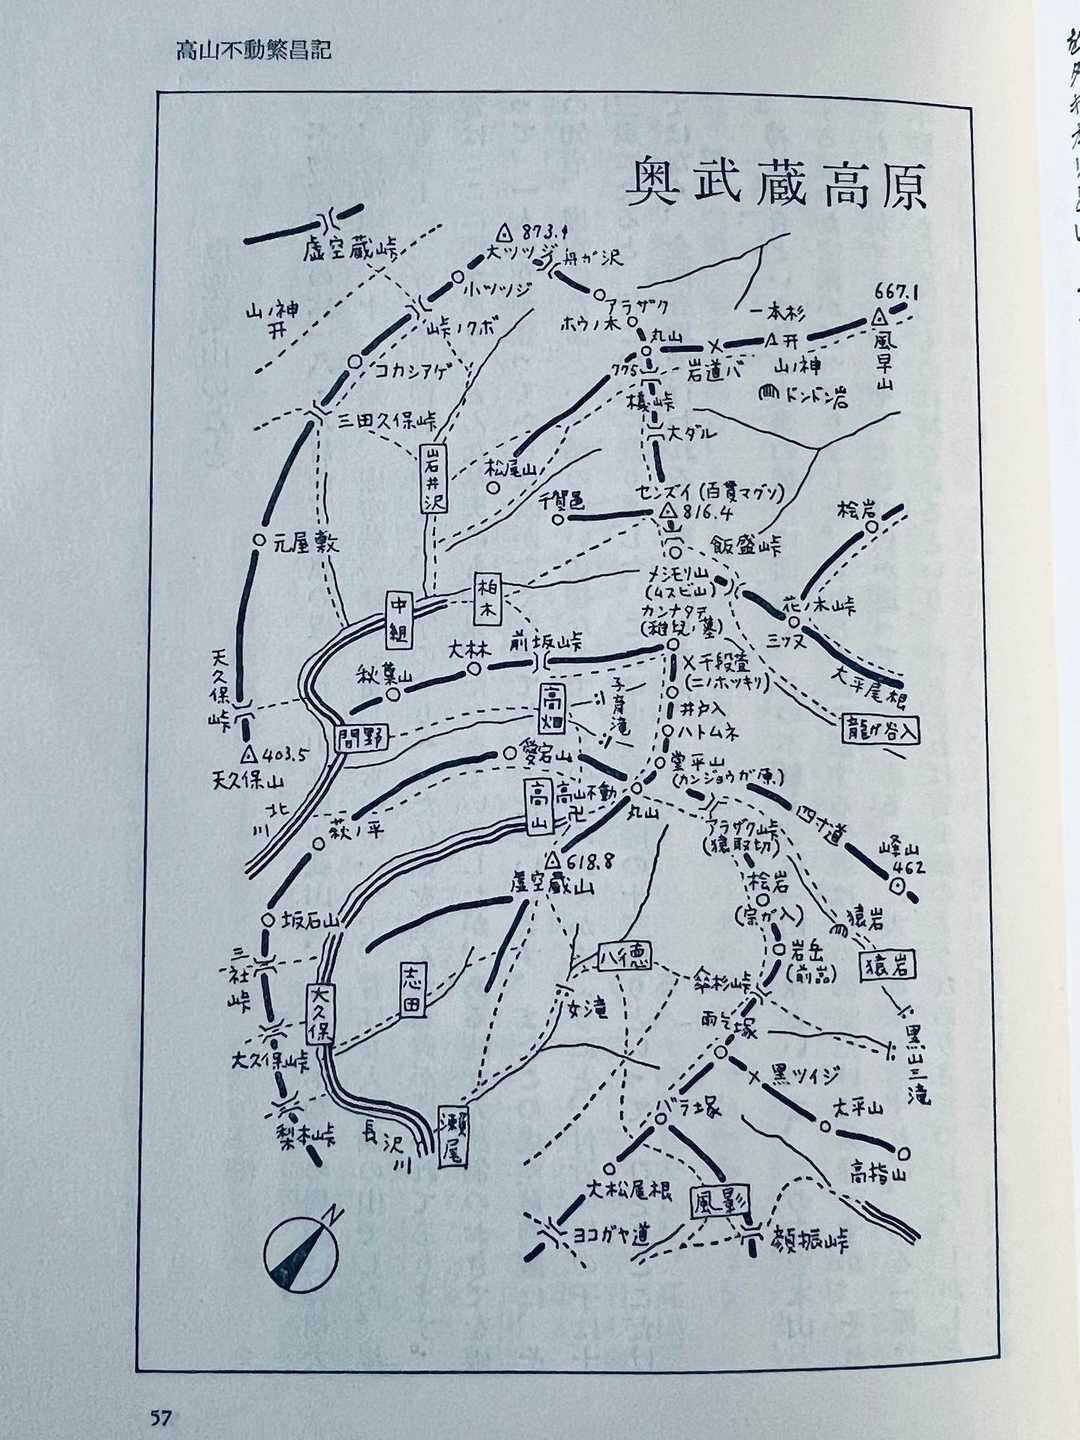 高山不動繁昌記
奥武蔵高原
虚空蔵峠
873.9
大ツツジ
舟ガ沢
小ツツジ
山ノ神
峠ノクボ
アラザク
ホウノ木
丸山
一本杉
667.1
風早山
775
岩道バ
山ノ神
ドンドン岩
コカシアゲ
三田久保峠
岩井沢
松尾山
大ダル
センズイ(百貫マグソ)
816.4
千賀邑
桧岩
元屋敷
飯盛峠
メシモリ山
(ムスビ山)
カンナタテ
(稚児ノ墓)
花ノ木峠
三ツ又
大平尾根
中組
柏木
大林
前坂峠
秋葉山
千段萱
(ニノホツキリ)
子育滝
高畑
井戸入
龍ガ谷入
天久保峠
間野
ハトムネ
403.5
天久保山
愛宕山
堂平山
(カンジョウガ原)
北川
高山
高山不動
卍
丸山
四十道
萩ノ平
アラザク峠
(猿取切)
峰山
462
618.8
虚空蔵山
桧岩
(宗ガ入)
坂石山
猿岩
三社峠
志田
八徳
岩岳
(前嵓)
猿岩
傘杉峠
大久保
女滝
雨乞塚
黒山三滝
大久保峠
黒ツイジ
梨本峠
バラ塚
大平山
長沢川
瀬尾
高指山
大松尾根
風影
ヨコガヤ道
顔振峠
N
57